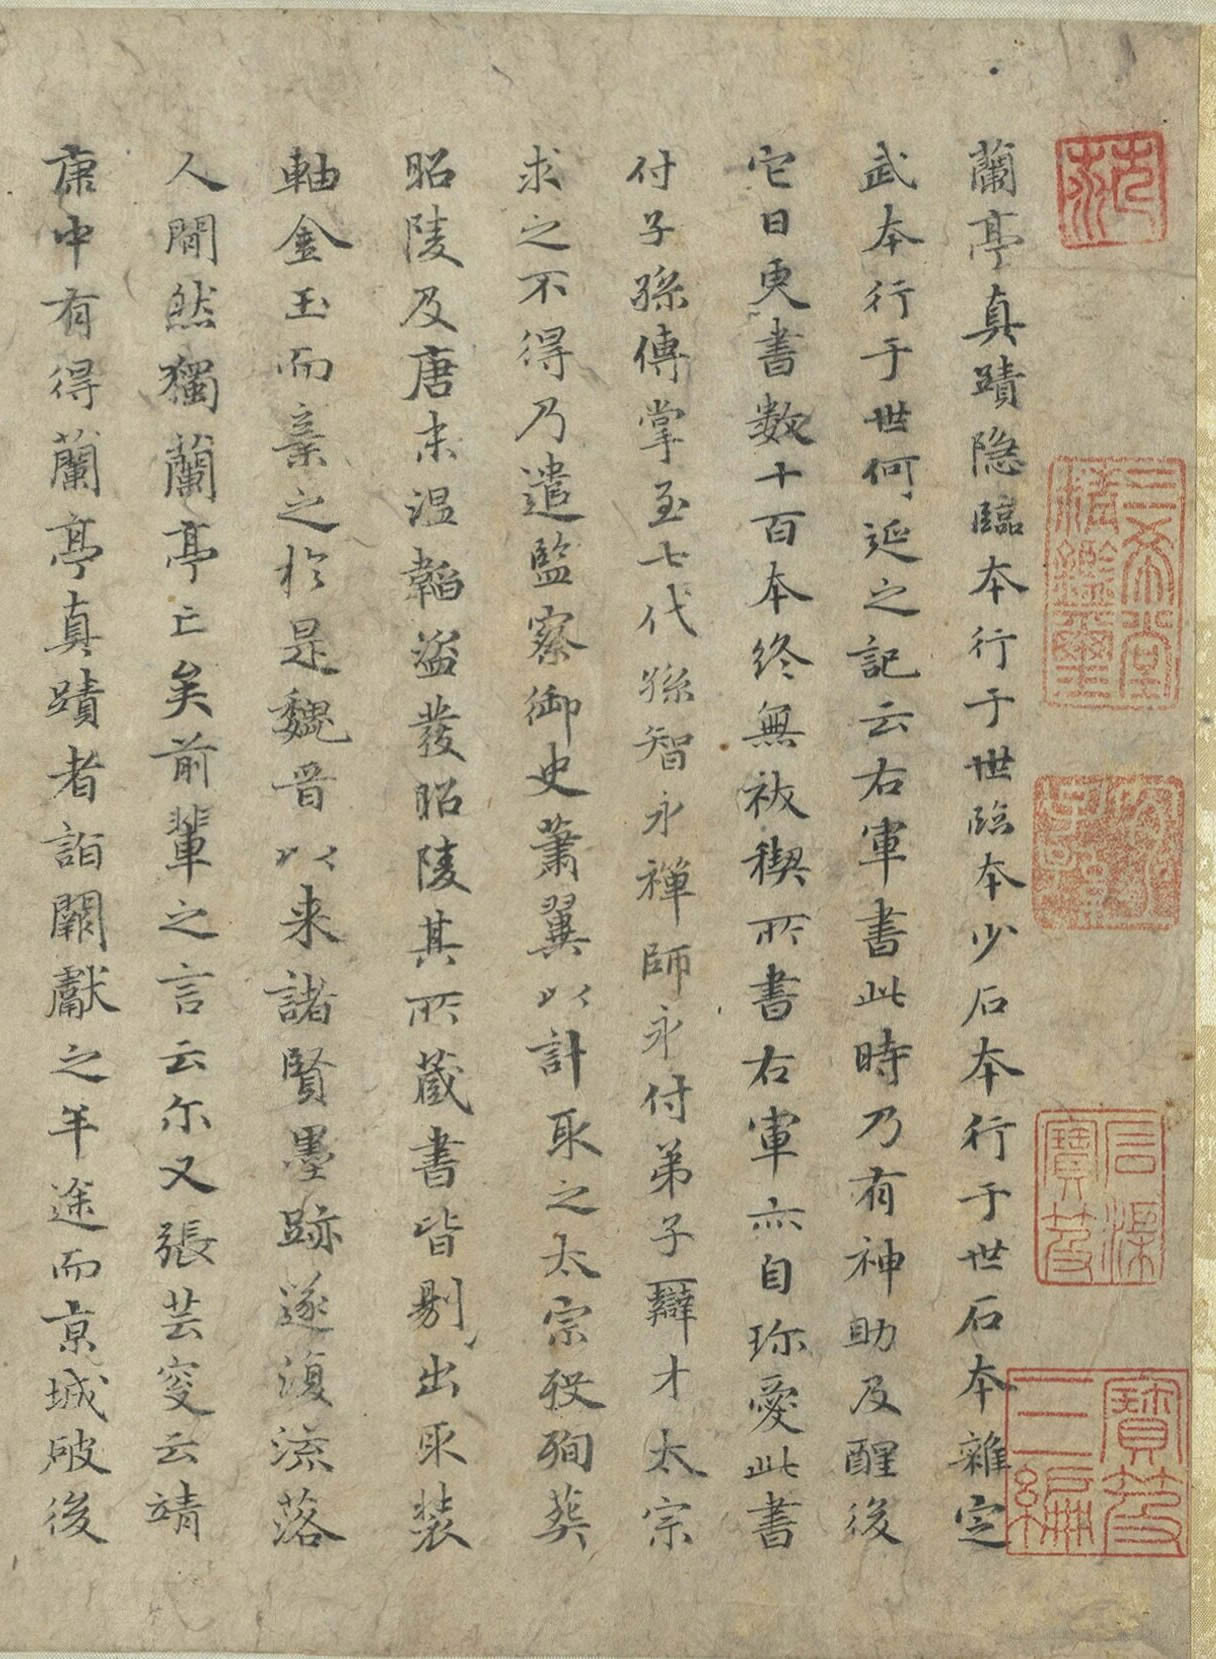 蘭亭真蹟隐臨本行于世臨本少石本行于世石本雜定
武本行于世何延之記云右軍書此時乃有神助及醒後
它日更書数十百本終無祓禊所書右軍亦自珎愛此書
付子孫傳掌至七代孫智永禪師永付弟子辯才太宗
求之不得乃遣監察御史蕭翼以計取之太宗殁殉葬
昭陵及唐末温韜盗發昭陵其所蔵書皆剔出取装
軸金玉而棄之於是魏晋以来諸賢墨跡遂復流落
人間然獨蘭亭亡矣前輩之言云尔又張芸叟云靖
康中有得蘭亭真蹟者詣闕獻之半途而京城破後
三希堂精鑑璽
石渠寶笈
寶笈三編